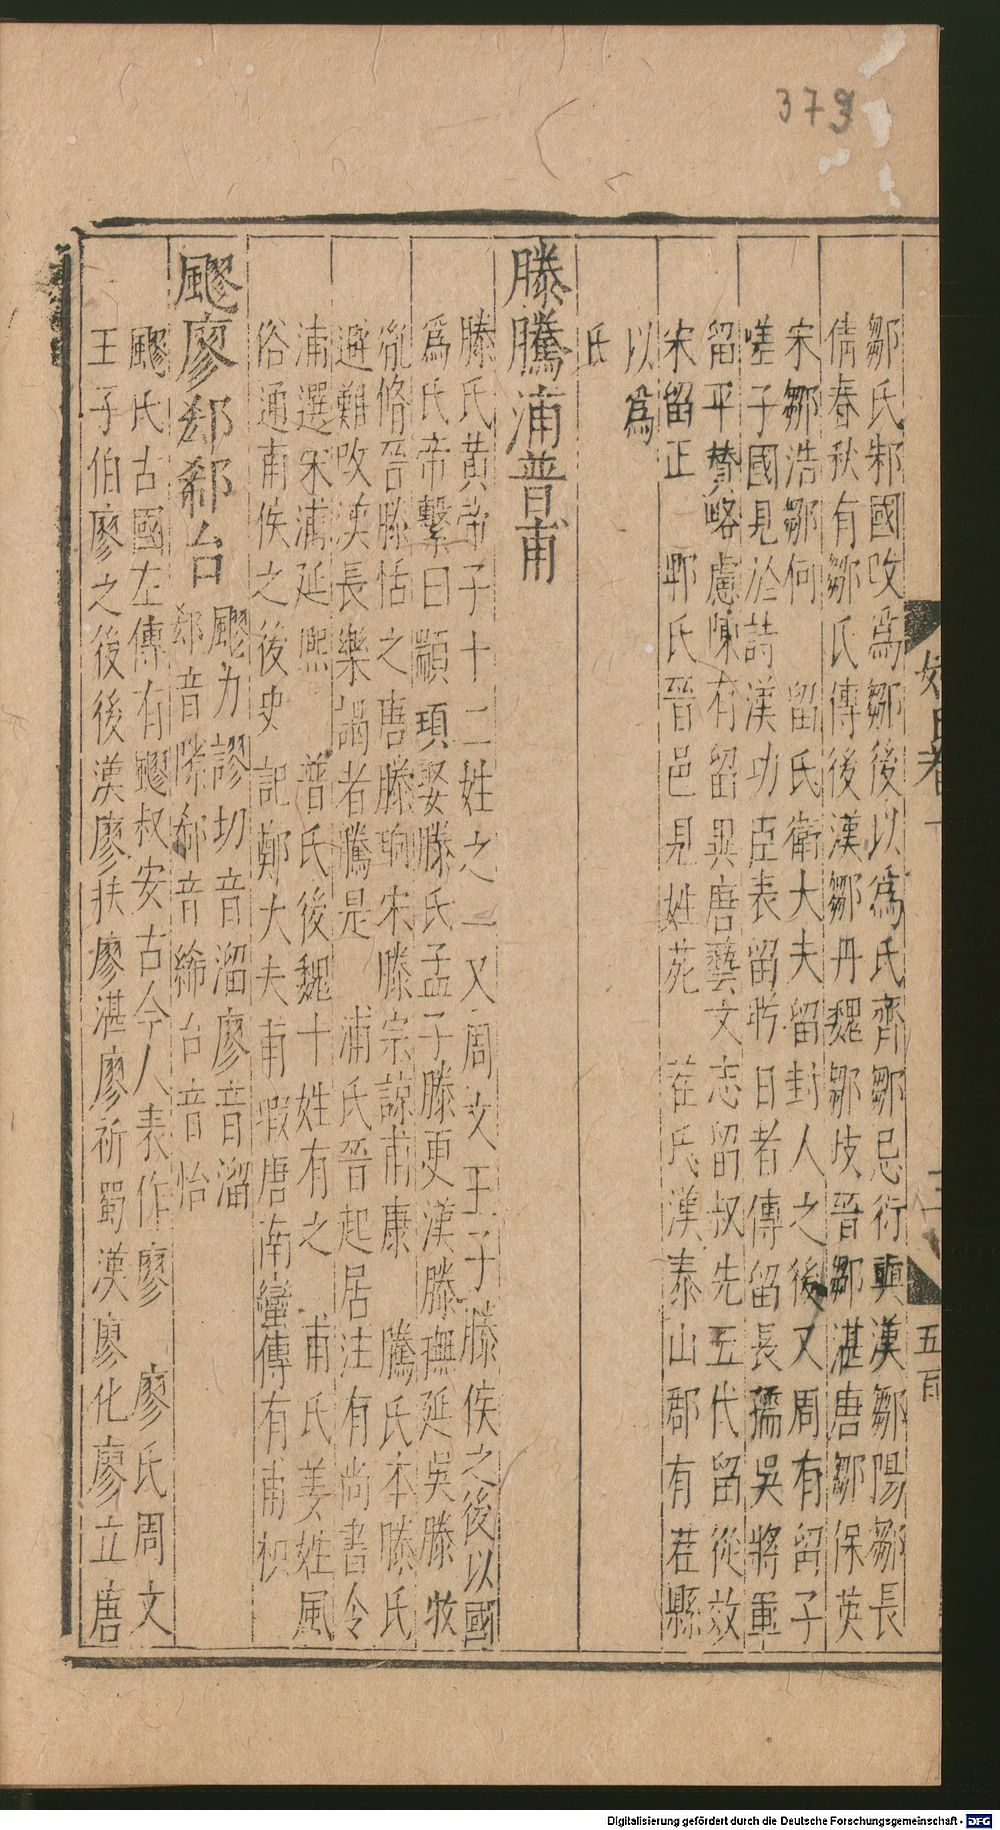 379
鄒氏邾國攺爲鄒後以爲氏齊鄒忌衍奭漢鄒陽鄒長
倩春秋有鄒氏傳後漢鄒丹魏鄒歧晉鄒湛唐鄒保英
宋鄒浩鄒何 留氏衛大夫留封人之後又周有留子
嗟子國見於詩漢功臣表留肹日者傳留長孺吳將軍
留平贊略慮陳有留異唐藝文志留叔先五代留從效
宋留正 郰氏晉邑見姓苑 茬氏漢泰山郡有茬縣
以爲
氏
滕騰浦普甫
滕氏黃帝子十二姓之一又周文王子滕侯之後以國
爲氏帝繫曰顓頊娶滕氏孟子滕更漢滕撫延吳滕牧
胤脩晉滕恬之唐滕珦宋滕宗諒甫康 騰氏本滕氏
避難攺漢長樂謁者騰是 浦氏晉起居注有尚書令
浦選宋浦延熙 普氏後魏十姓有之 甫氏姜姓風
俗通甫侯之後史記鄭大夫甫瑕唐南蠻傳有甫
飂廖郄郗台
飂力謬切音溜廖音溜
郄音隙郗音絺台音怡
飂氏古國左傳有飂叔安古今人表作廖 廖氏周文
王子伯廖之後後漢廖扶廖湛廖祈蜀漢廖化廖立唐
姓氏
五百
Digitalisierung gefördert durch die Deutsche Forschungsgemeinschaft - DFG